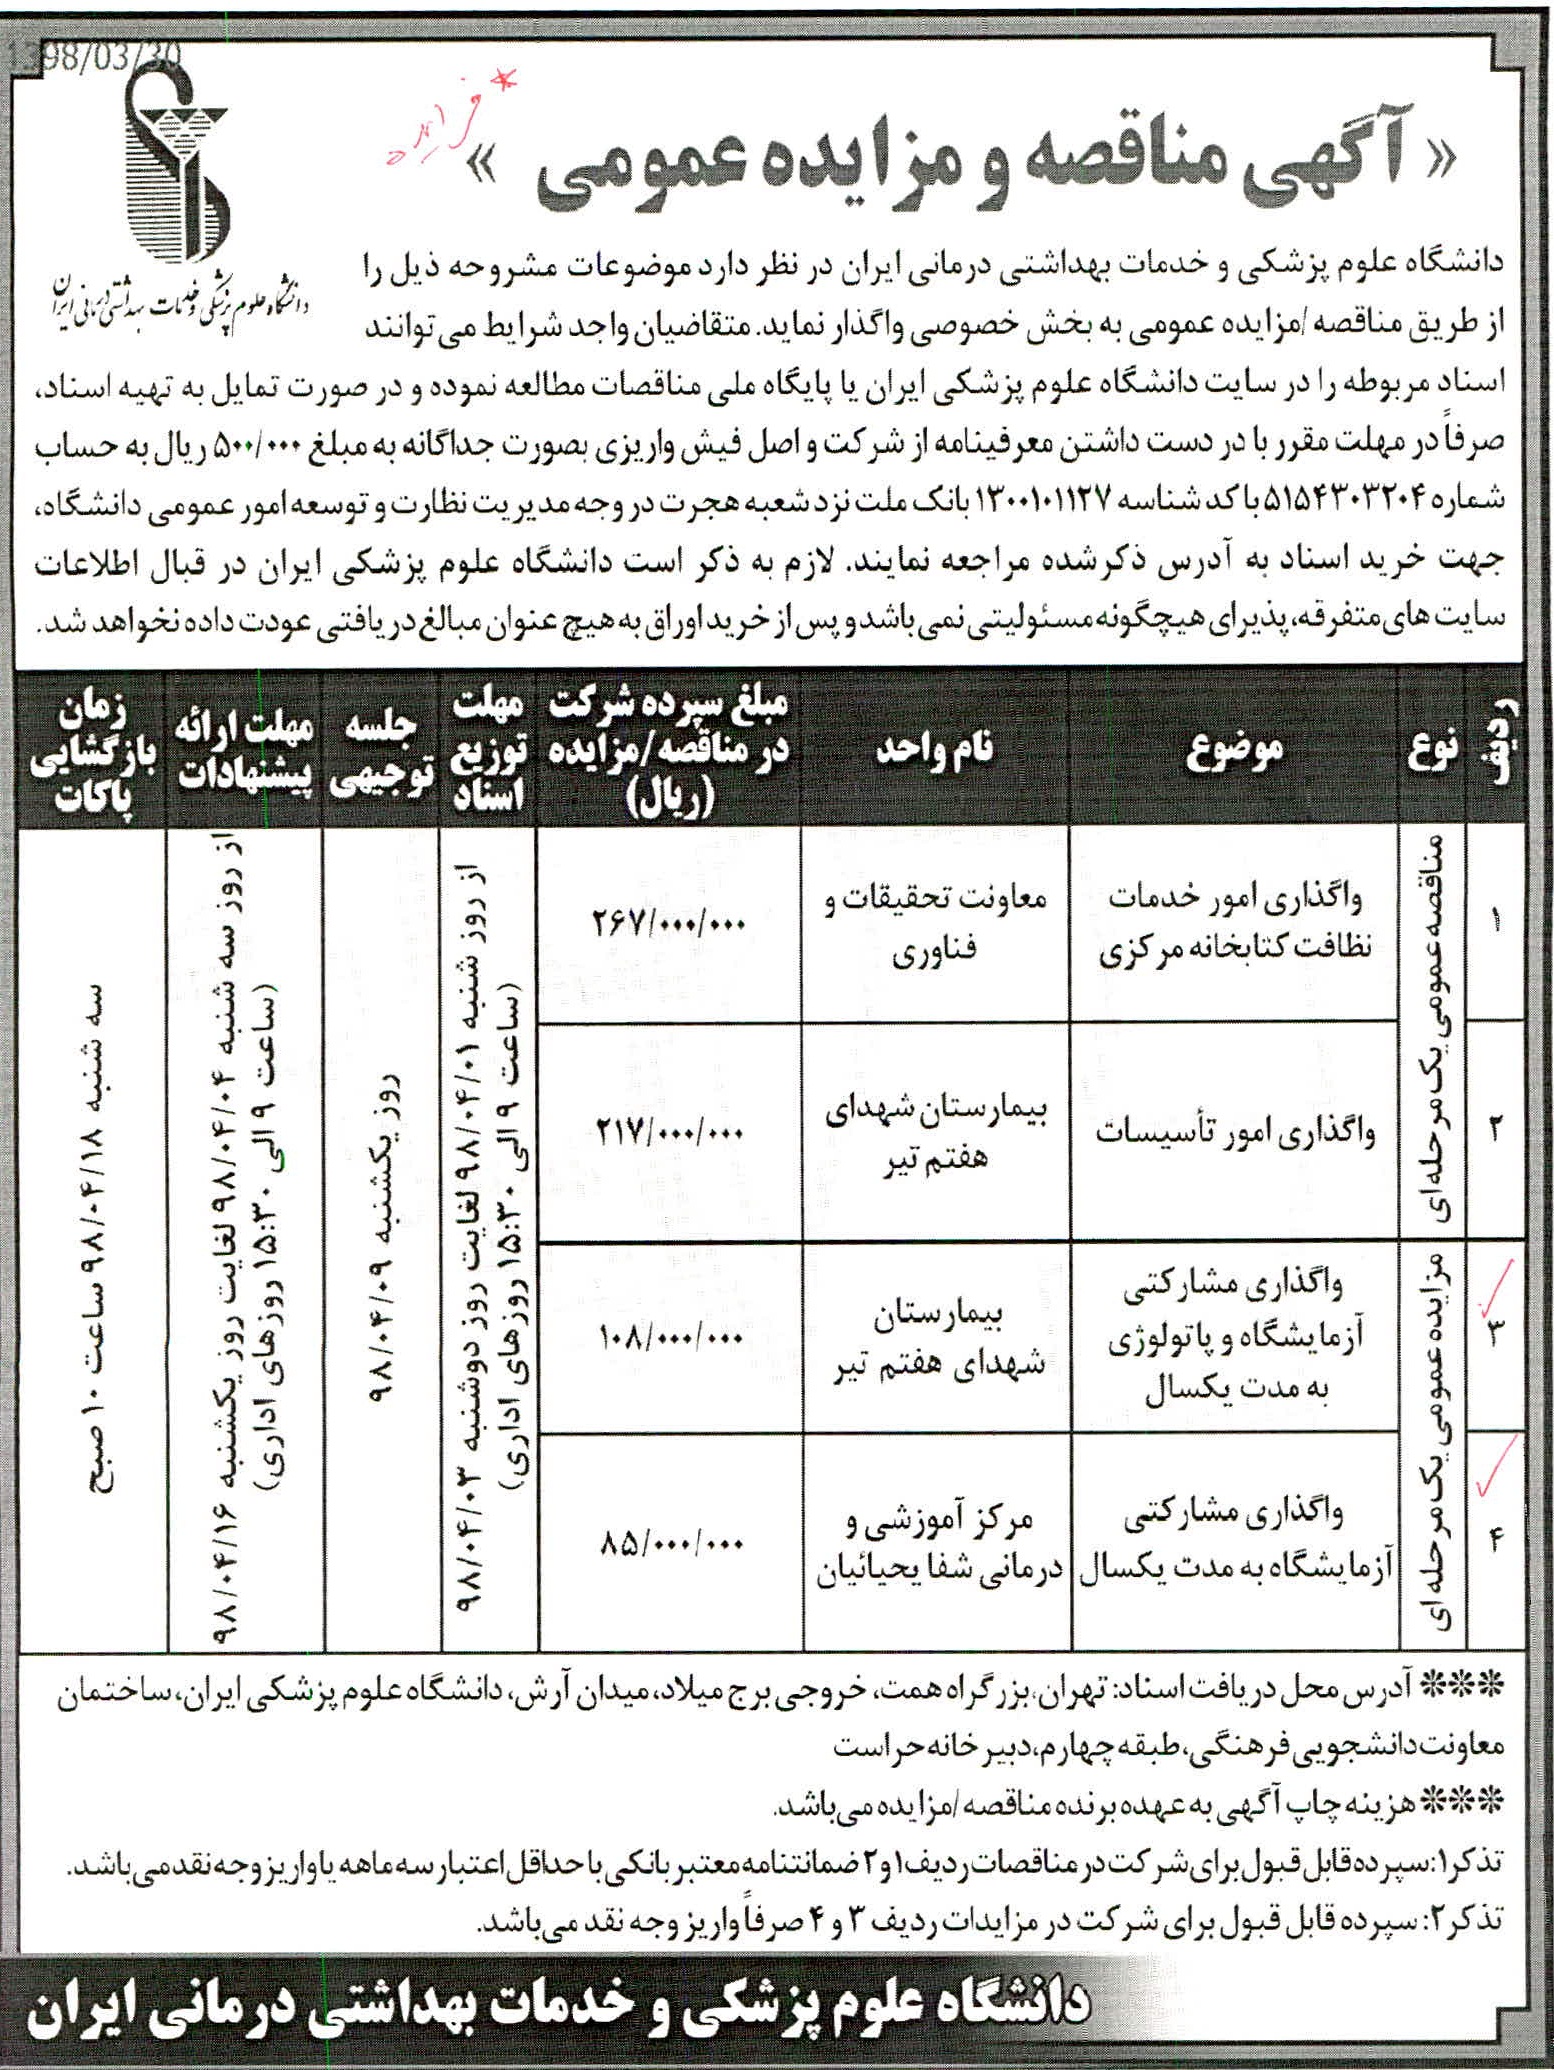 1398/03/30
« آگهی مناقصه و مزایده عمومی »
دانشگاه علوم پزشکی و خدمات بهداشتی درمانی ایران
دانشگاه علوم پزشکی و خدمات بهداشتی درمانی ایران در نظر دارد موضوعات مشروحه ذیل را
از طریق مناقصه /مزایده عمومی به بخش خصوصی واگذار نماید. متقاضیان واجد شرایط می توانند
اسناد مربوطه را در سایت دانشگاه علوم پزشکی ایران یا پایگاه ملی مناقصات مطالعه نموده و در صورت تمایل به تهیه اسناد،
صرفاً در مهلت مقرر با در دست داشتن معرفینامه از شرکت و اصل فیش واریزی بصورت جداگانه به مبلغ ۵۰۰/۰۰۰ ریال به حساب
شماره ۵۱۵۴۳۰۳۲۰۴ با کد شناسه ۱۳۰۰۱۰۱۱۲۷ بانک ملت نزد شعبه هجرت در وجه مدیریت نظارت و توسعه امور عمومی دانشگاه،
جهت خرید اسناد به آدرس ذکر شده مراجعه نمایند. لازم به ذکر است دانشگاه علوم پزشکی ایران در قبال اطلاعات
سایت های متفرقه، پذیرای هیچگونه مسئولیتی نمی باشد و پس از خرید اوراق به هیچ عنوان مبالغ دریافتی عودت داده نخواهد شد.
ردیف
نوع
موضوع
نام واحد
مبلغ سپرده شرکت
در مناقصه/مزایده
(ریال)
مهلت
توزیع
اسناد
جلسه
توجیهی
مهلت ارائه
پیشنهادات
زمان
بازگشایی
پاکات
۱
مناقصه عمومی یک مرحله ای
واگذاری امور خدمات
نظافت کتابخانه مرکزی
معاونت تحقیقات و
فناوری
۲۶۷/۰۰۰/۰۰۰
از روز شنبه ۹۸/۰۴/۰۱ لغایت روز دوشنبه ۹۸/۰۴/۰۳
(ساعت ۹ الی ۱۵:۳۰ روزهای اداری)
روز یکشنبه ۹۸/۰۴/۰۹
از روز سه شنبه ۹۸/۰۴/۰۴ لغایت روز یکشنبه ۹۸/۰۴/۱۶
(ساعت ۹ الی ۱۵:۳۰ روزهای اداری)
سه شنبه ۹۸/۰۴/۱۸ ساعت ۱۰ صبح
۲
واگذاری امور تأسیسات
بیمارستان شهدای
هفتم تیر
۲۱۷/۰۰۰/۰۰۰
۳
مزایده عمومی یک مرحله ای
واگذاری مشارکتی
آزمایشگاه و پاتولوژی
به مدت یکسال
بیمارستان
شهدای هفتم تیر
۱۰۸/۰۰۰/۰۰۰
۴
واگذاری مشارکتی
آزمایشگاه به مدت یکسال
مرکز آموزشی و
درمانی شفا یحیائیان
۸۵/۰۰۰/۰۰۰
*** آدرس محل دریافت اسناد: تهران، بزرگراه همت، خروجی برج میلاد، میدان آرش، دانشگاه علوم پزشکی ایران، ساختمان
معاونت دانشجویی فرهنگی، طبقه چهارم، دبیرخانه حراست
*** هزینه چاپ آگهی به عهده برنده مناقصه /مزایده می باشد.
تذکر۱: سپرده قابل قبول برای شرکت در مناقصات ردیف ۱ و ۲ ضمانتنامه معتبر بانکی با حداقل اعتبار سه ماهه یا واریز وجه نقد می باشد.
تذکر۲: سپرده قابل قبول برای شرکت در مزایدات ردیف ۳ و ۴ صرفاً واریز وجه نقد می باشد.
دانشگاه علوم پزشکی و خدمات بهداشتی درمانی ایران